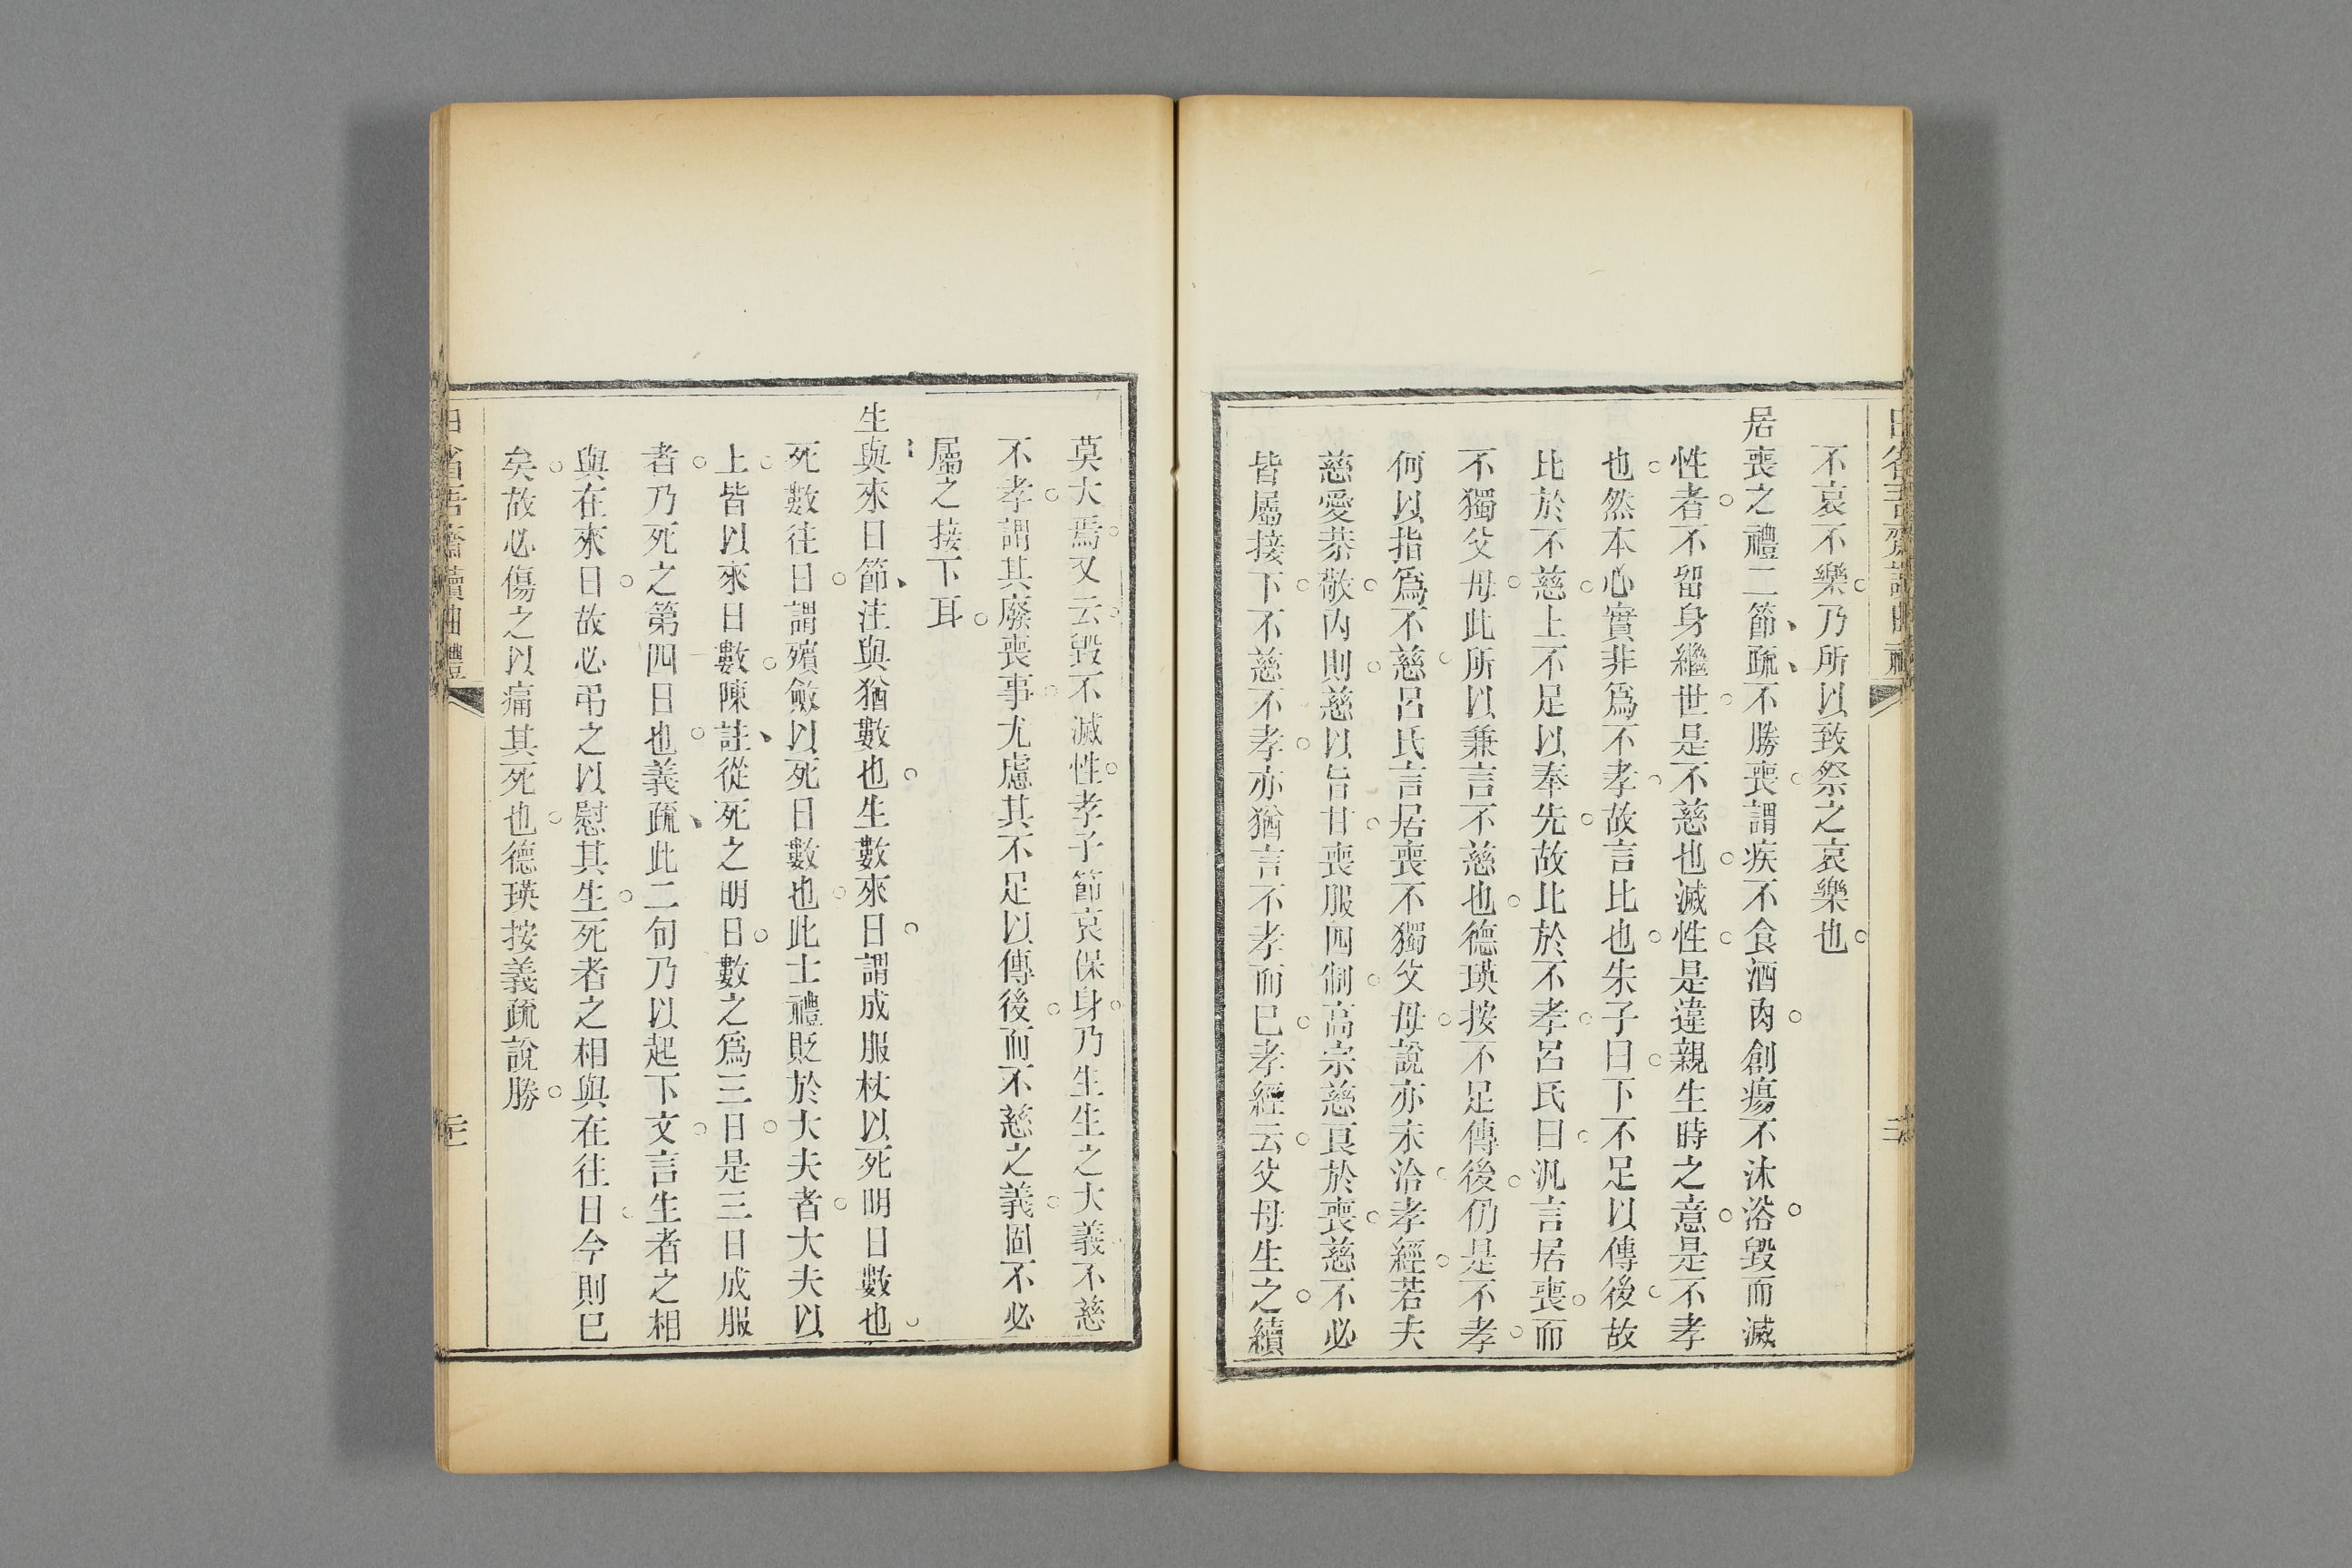 不哀不樂乃所以致祭之哀樂也
居喪之禮二節疏不勝喪謂疾不食酒肉創瘍不沐浴毀而滅
性者不留身繼世是不慈也滅性是違親生時之意是不孝
也然本心實非爲不孝故言比也朱子曰下不足以傳後故
比於不慈上不足以奉先故比於不孝呂氏曰汎言居喪而
不獨父母此所以兼言不慈也德瑛按不足傳後仍是不孝
何以指爲不慈呂氏言居喪不獨父母說亦未洽孝經若夫
慈愛恭敬內則慈以旨甘喪服四制高宗慈良於喪慈不必
皆屬接下不慈不孝亦猶言不孝而已孝經云父母生之續
莫大焉又云毀不滅性孝子節哀保身乃生生之大義不慈
不孝謂其廢喪事尤慮其不足以傳後而不慈之義固不必
屬之接下耳
生與來日節注與猶數也生數來日謂成服杖以死明日數也
死數往日謂殯斂以死日數也此士禮貶於大夫者大夫以
上皆以來日數陳註從死之明日數之爲三日是三日成服
者乃死之第四日也義疏此二句乃以起下文言生者之相
與在來日故必弔之以慰其生死者之相與在往日今則已
矣故必傷之以痛其死也德瑛按義疏說勝